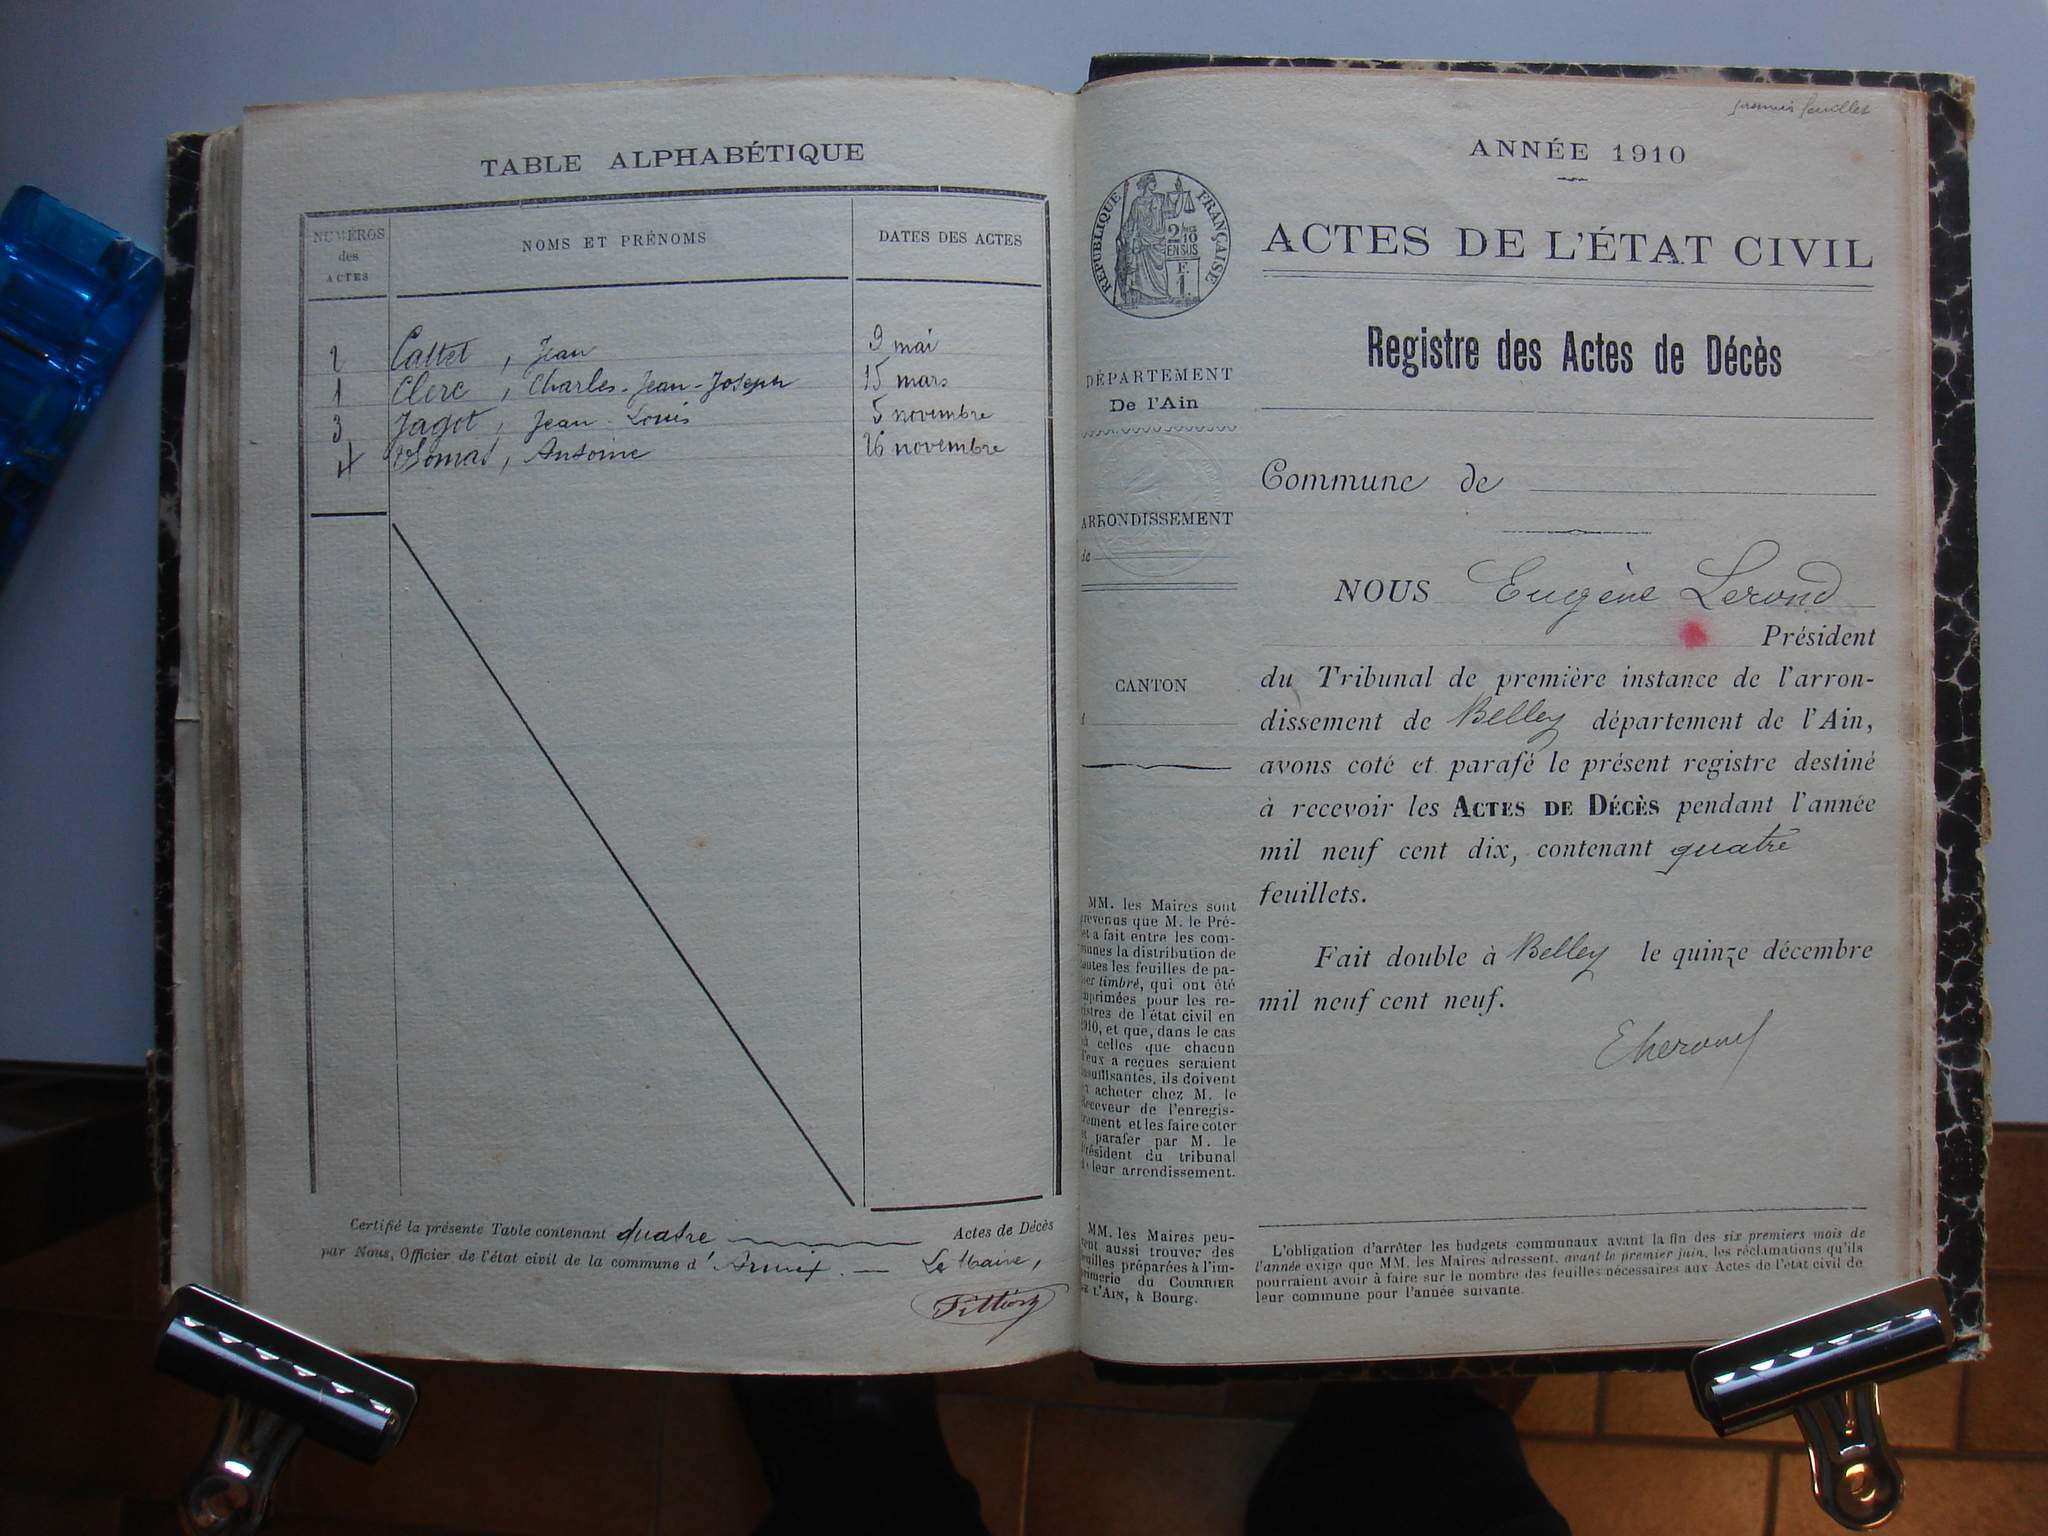 TABLE ALPHABÉTIQUE
NUMÉROS des ACTES
NOMS ET PRÉNOMS
DATES DES ACTES
2 Cattet, Jean 9 mai
1 Clerc, Charles-Jean-Joseph 15 mars
3 Jagot, Jean-Louis 5 novembre
4 Antoine 26 novembre
Certifié la présente Table contenant quatre Actes de Décès
par Nous, Officier de l'état civil de la commune d'Armix. Le Maire,
premier feuillet
ANNÉE 1910
RÉPUBLIQUE FRANÇAISE
2/10
EN SUS
F.
1.
ACTES DE L'ÉTAT CIVIL
Registre des Actes de Décès
DÉPARTEMENT
De l'Ain
ARRONDISSEMENT
de
CANTON
Commune de
NOUS Eugène Lerond
Président
du Tribunal de première instance de l'arron-
dissement de Belley département de l'Ain,
avons coté et parafé le présent registre destiné
à recevoir les ACTES DE DÉCÈS pendant l'année
mil neuf cent dix, contenant quatre
feuillets.
Fait double à Belley le quinze décembre
mil neuf cent neuf.
MM. les Maires sont
prévenus que M. le Pré-
et a fait entre les com-
munes la distribution de
toutes les feuilles de pa-
pier timbré, qui ont été
imprimées pour les re-
gistres de l'état civil en
1910, et que, dans le cas
où celles que chacun
d'eux a reçues seraient
insuffisantes, ils doivent
en acheter chez M. le
Receveur de l'enregis-
trement et les faire coter
et parafer par M. le
Président du tribunal
de leur arrondissement.
MM. les Maires peu-
vent aussi trouver des
feuilles préparées à l'im-
primerie du COURRIER
DE L'AIN, à Bourg.
L'obligation d'arrêter les budgets communaux avant la fin des six premiers mois de
l'année exige que MM. les Maires adressent, avant le premier juin, les réclamations qu'ils
pourraient avoir à faire sur le nombre des feuilles nécessaires aux Actes de l'état civil de
leur commune pour l'année suivante.